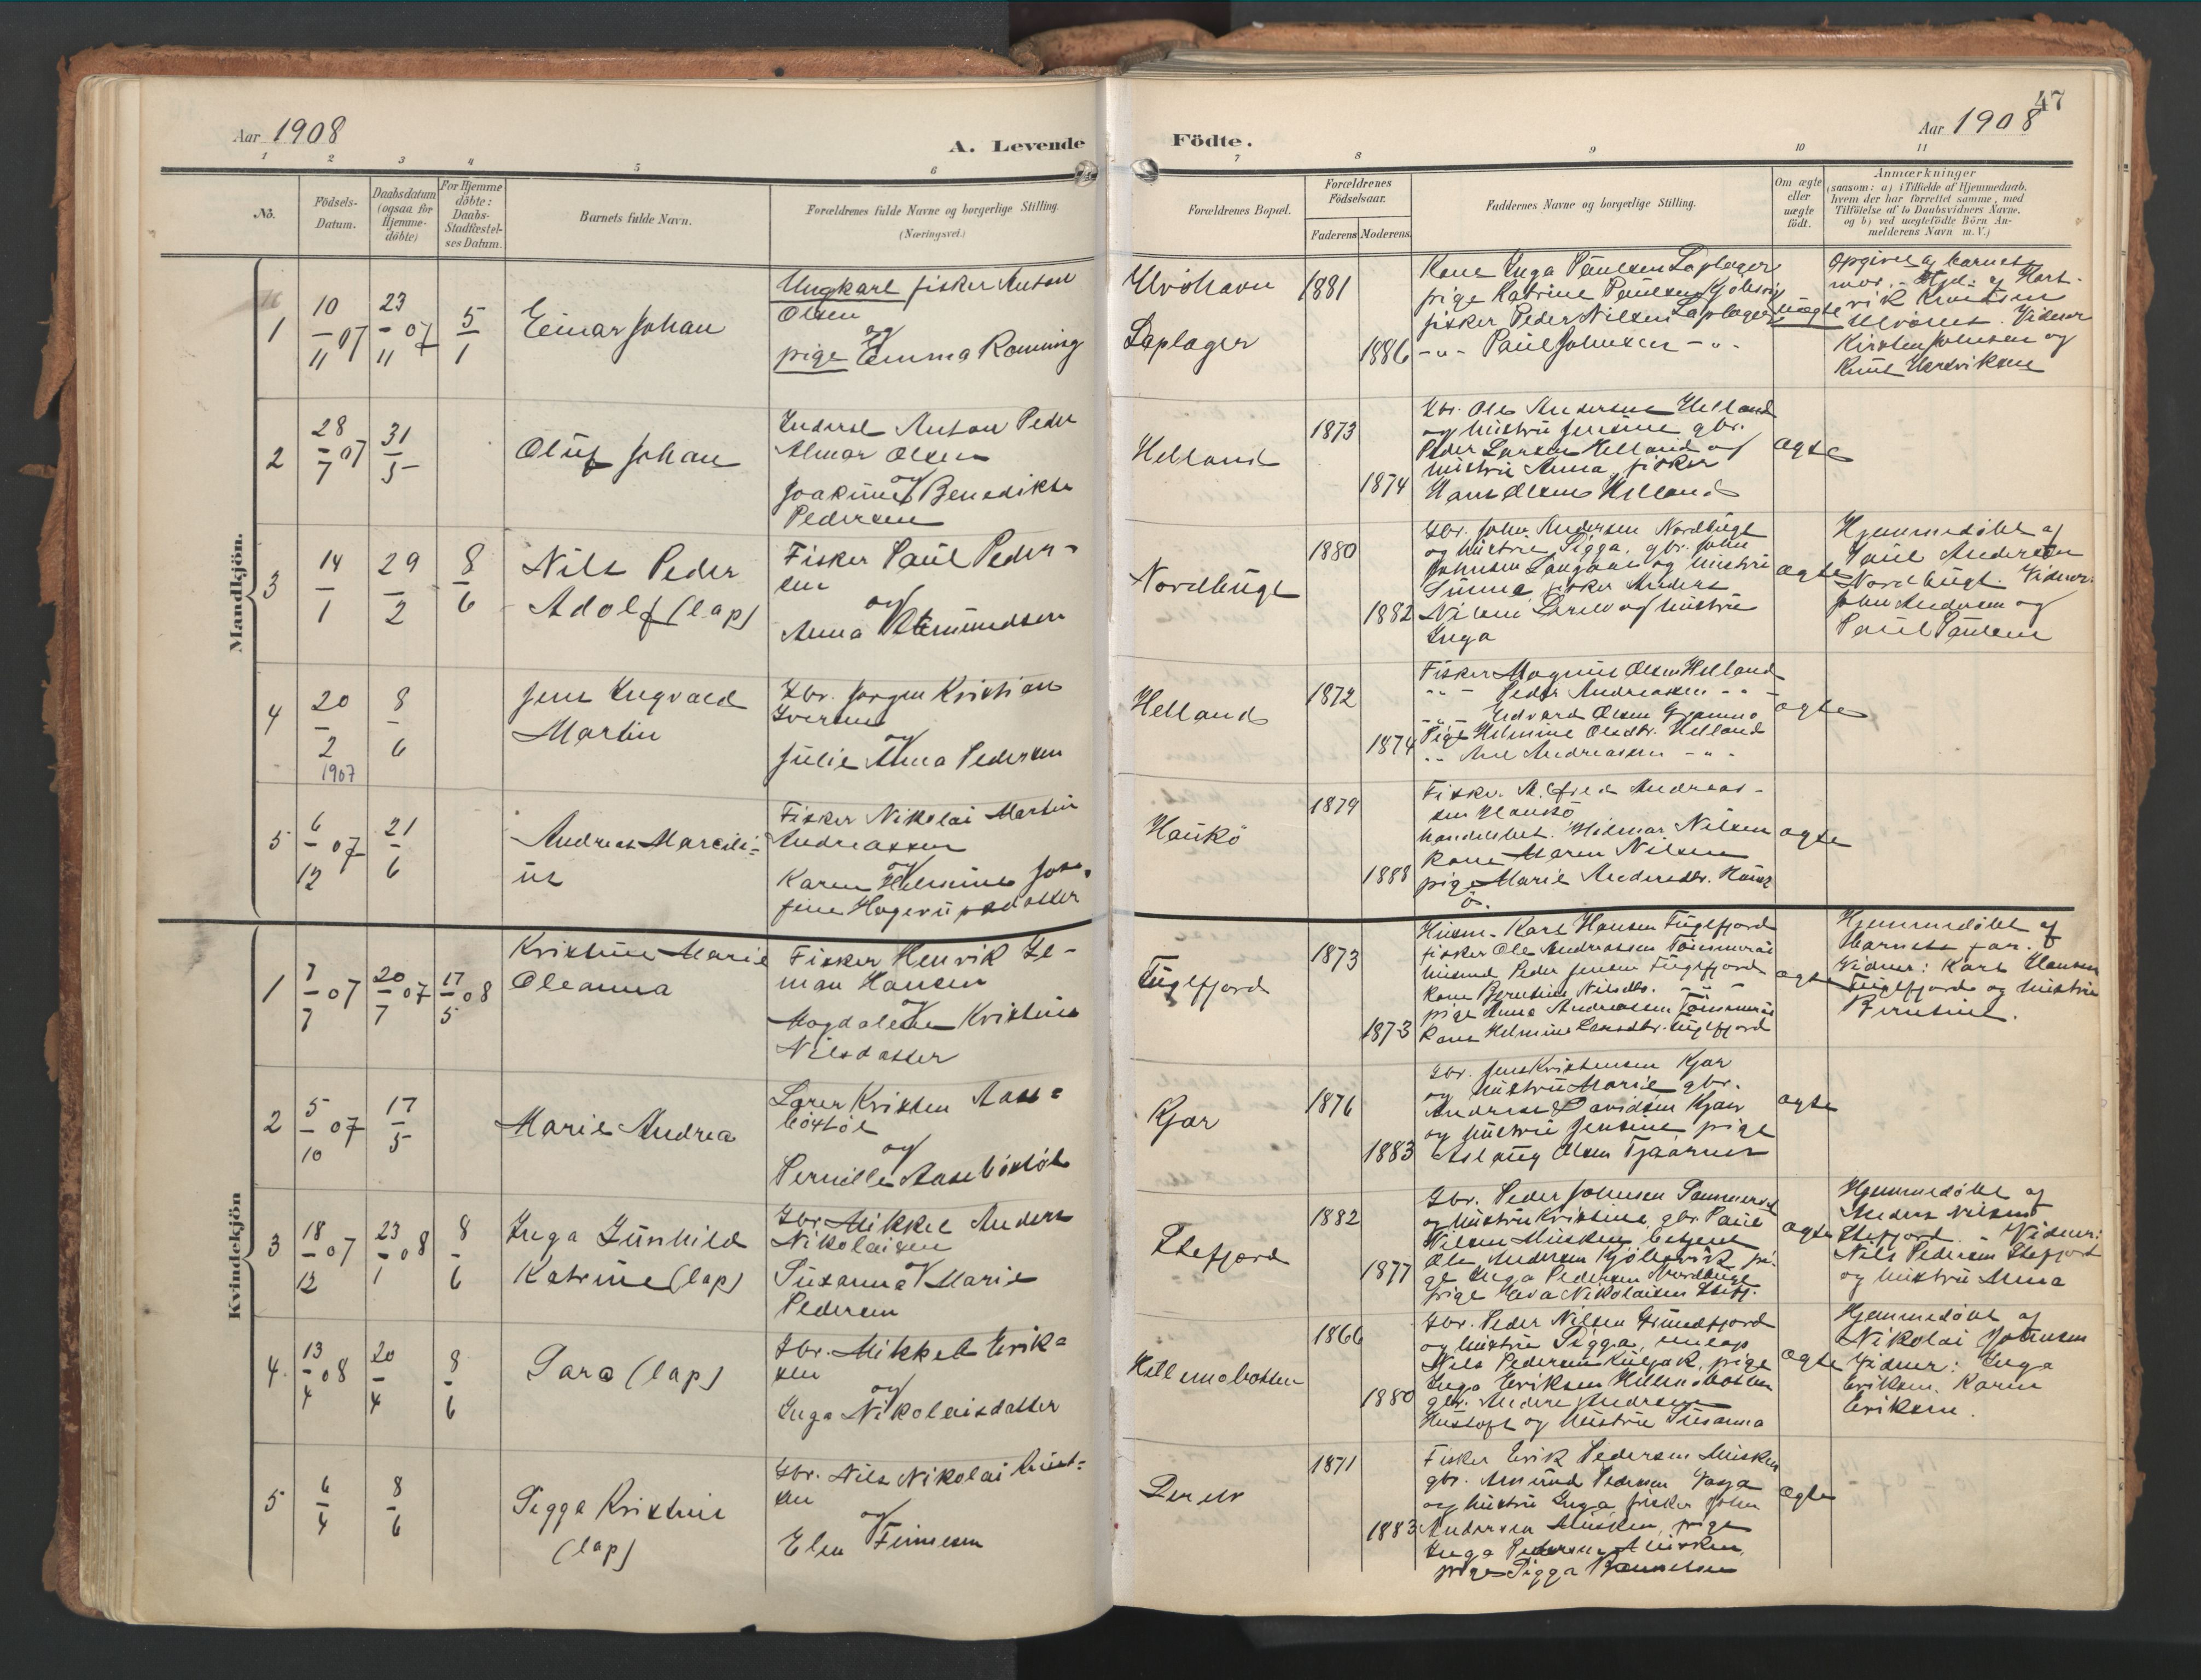 Aar 1908
A. Levende
Födte.
Aar 1908
47
1 2 3 4 5 6 7 8 9 10 11
Nö.
Födsels-Datum.
Daabsdatum (ogsaa for Hjemme-döbte)
For Hjemme döbte: Daabs-Stadfæstel-ses Datum.
Barnets fulde Navn.
Forældrenes fulde Navne og borgerlige Stilling. (Næringsvei.)
Forældrenes Bopæl.
Forældrenes Födselsaar.
Faderens
Moderens
Faddernes Navne og borgerlige Stilling.
Om ægte eller uægte födt.
Anmærkninger
(saasom: a) i Tilfælde af Hjemmedaab, hvem der har forrettet samme, med Tilföielse af to Daabsvidners Navne, og b) ved uægtefödte Börn An-melderens Navn m. V.)
Mandkjön.
1
10/11 07
23/11 07
5/1
Einar Johan
Ungkarl fisker Anton
Olsen
og
pige Emma Ronning
Laplager
1881
1886
Kone Inga Paulsen Laplager
pige Katrine Paulsen
fisker Peder Nilsen Laplager
-"- Paul Johnsen -"-
uægte
Opgivet af barnets
mor. Hjd. af Hart-
vik Knudsen
Vidner
Kirsten Johnsen og
Knut Hendriksen
2
28/7 07
31/5
Oluf Johan
Inderst Anton Peder
Almar Olsen
og
Joakime Benedikte
Pedersen
Helland
1873
1874
Gbr. Ole Andersen Helland
og hustru Jensine gbr.
Peder Larsen Helland og
hustru Anna, fisker
Hans Olsen Helland
ægte
3
14/1
29/2
8/6
Nils Peder
Adolf (lap)
Fisker Paul Peder-
sen
og
Anna Amundsen
Nordbugt
1880
1882
Gbr. John Andersen Nordbugt
og hustru Sigga, gbr. John
Johnsen og hustru
fisker Anders
Nilsen og hustru
Inga
ægte
Hjemmedøbt af
Paul Andersen
Nordbugt. Vidner:
John Andersen og
Paul Paulsen
4
20/2 1907
8/6
Jens Ingvald
Martin
Gbr. Jørgen Kristian
Iversen
og
Julie Anna Pedersen
Helland
1872
1874
Fisker Magnus Olsen Helland
-"- Peder Andreassen -"-
-"- Edvard Olsen
Pige Helmine Olsdtr. Helland
-"- Ane Andreassen -"-
ægte
5
6/12 07
21/6
Andreas Marcili=
us
Fisker Nikolai Martin
Andreassen
og
Karen Helmine Jose-
fine Hagerupsdatter
Haukø
1879
1888
Fisker Alfred Andreas-
sen Haukø
handelsbet. Hilmar Nilsen
kone Maren Nilsen
pige Marie Andersdtr. Hauk
ø.
ægte
Kvindekjön
1
7/7 07
20/7 07
17/5 08
Kristine Marie
Oleanna
Fisker Henrik El-
man Hansen
og
Magdalene Kristine
Nilsdatter
Fuglfjord
1873
1873
Husm. Karl Hansen Fuglfjord
fisker Ole Andreassen
husmd. Peder Jensen Fuglfjord
kone Berntine Nilsdtr. -"-
pige Anna Andreassen
kone Helmine Larsdtr. Fuglfjord
ægte
Hjemmedøbt af
Barnets far.
Vidner: Karl Hansen
Fuglfjord og hustru
Berntine.
2
5/10 07
17/5
Marie Andrea
Lærer Kristen Aase=
bøstøl
og
Pernille Aasebøstøl
Kjær
1876
1883
Gbr. Jens Kristensen Kjær
og hustru Marie gbr.
Andreas Davidsen Kjær
og hustru Jensine pige
Aslaug Olsen
ægte
3
18/12 07
23/1 08
8/6
Inga Gunhild
Katrine (lap)
Gbr. Mikkel Anders
Nikolaisen
og
Susanna Marie
Pedersen
Stefjord
1882
1877
Gbr. Peder Johnsen
og hustru Kristine, gbr. Paul
Nilsen Musken, betjent
Ole Andersen Kjøbsvik, pi-
ge Inga Pedersen Nordbugt
pige Eva Nikolaisen Stefj.
ægte
Hjemmedøbt af
Anders Nilsen
Stefjord. Vidner:
Nils Pedersen Stefjord
og hustru Anna
4
13/4 08
20/4
8/6
Sara (lap)
Gbr. Mikkel Erik=
sen
og
Inga Nikolaisdatter
Hellemobotten
1866
1880
Gbr. Peder Nilsen Grundfjord
og hustru Sigga,
Nils Pedersen, pige
Inga Eriksen Hellemobotten
gbr. Anders Andersen
og hustru Susanna
ægte
Hjemmedøbt af
Nikolai Johnsen
Vidner: Inga
Eriksen. Karen
Eriksen.
5
6/4
8/6
Sigga Kristine
(lap)
Gbr. Nils Nikolai Knut=
sen
og
Elen Finnesen
1871
1883
Fisker Erik Pedersen Musken
gbr. Amund Pedersen
og hustru Inga fisker John
Andersen Musken, pige
Inga Pedersen Musken,
pige Sigga
ægte